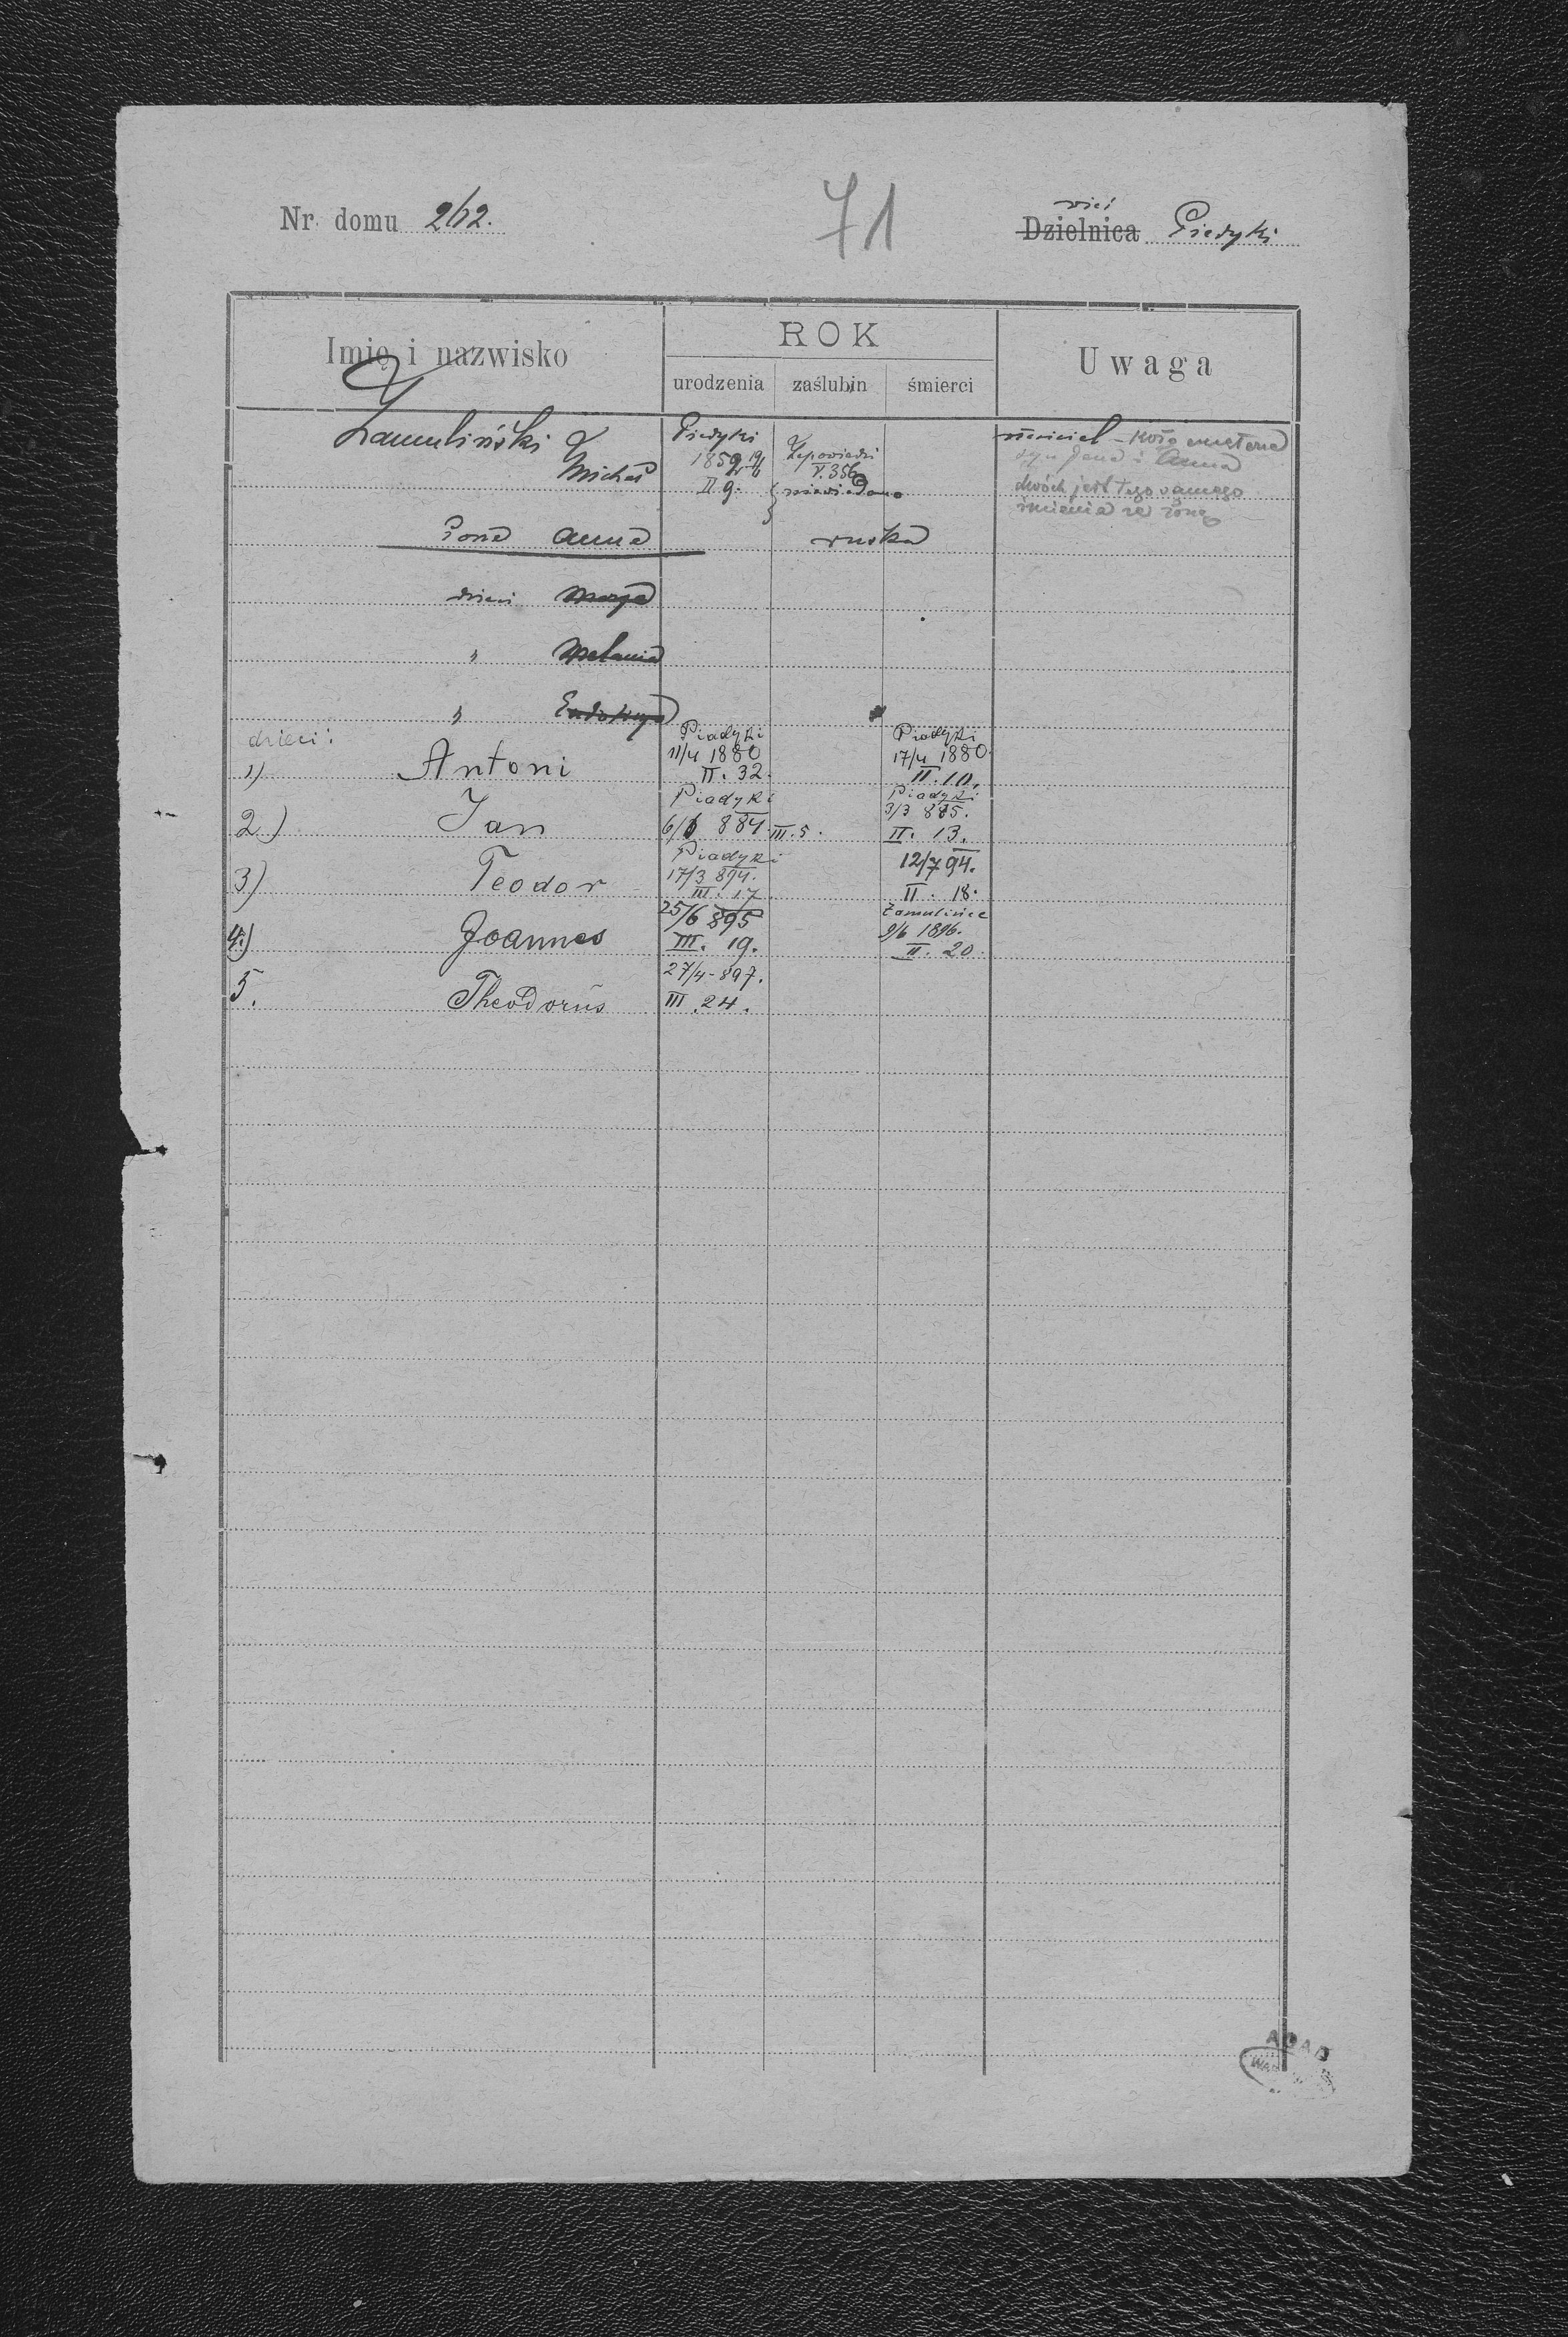 Nr. domu 262.
71
wieś
Dzielnica Piadyki
Imię i nazwisko
ROK
urodzenia zaślubin śmierci
Uwaga
Zamuliński
Michał
Piadyki
1859 19/6
II 9.
Zapowiedzi
V. 356
niewiadomo
syn Jana i Anna
dwóch jest tego samego
imienia ze żoną
żona Anna ruska
dzieci Marya
" Melania
" Eudokya
dzieci:
1) Antoni
Piadyki
11/4 1880
II. 32.
Piadyki
17/4 1880.
II. 10.
2.) Jan
Piadyki
6/6 884. III. 5.
Piadyki
3/3 885.
II. 13.
3) Teodor
Piadyki
17/3 894.
III. 17
12/7 94.
II. 18.
4.) Joannes
25/6 895
III. 19.
Zamulińce
9/6 1896.
II. 20
5. Theodorus
27/4-897.
III. 24.
AGAD